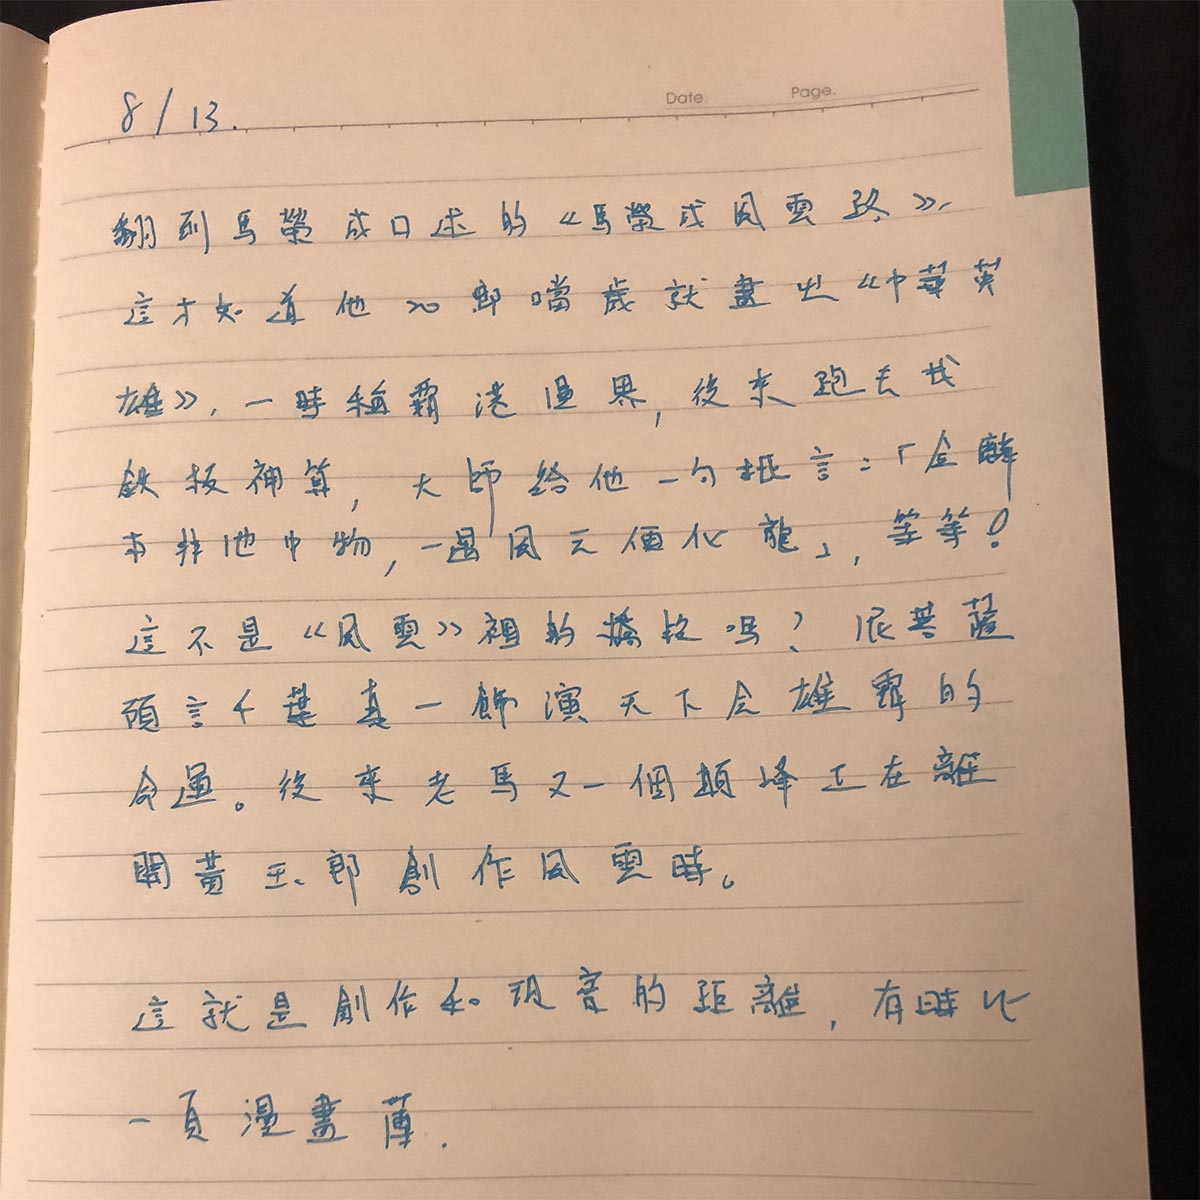 Date. Page.
8/13.
翻到馬榮成口述的《馬榮成風雲路》，
這才知道他20郎噹歲就畫出《中華英
雄》，一時稱霸港漫界，後來跑去找
鉄板神算，大師給他一句批言：「金麟
本非池中物，一遇風云便化龍」，等等！
這不是《風雲》裡的橋段嗎？泥菩薩
預言千葉真一飾演天下會雄霸的
命運。後來老馬又一個巔峰正在離
開黃玉郎創作風雲時。
這就是創作和現實的距離，有時比
一頁漫畫薄.